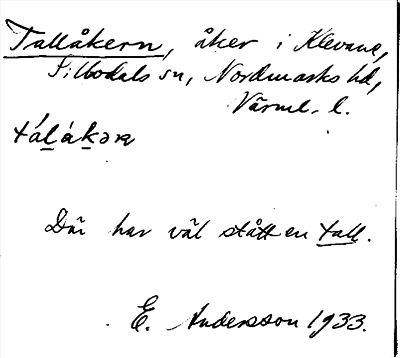 Tallåkern, åker i Klevane,
Silbodals sn, Nordmarks hd,
Värml. l.
tálàkəɳ
Där har väl stått en tall.
E. Andersson 1933.